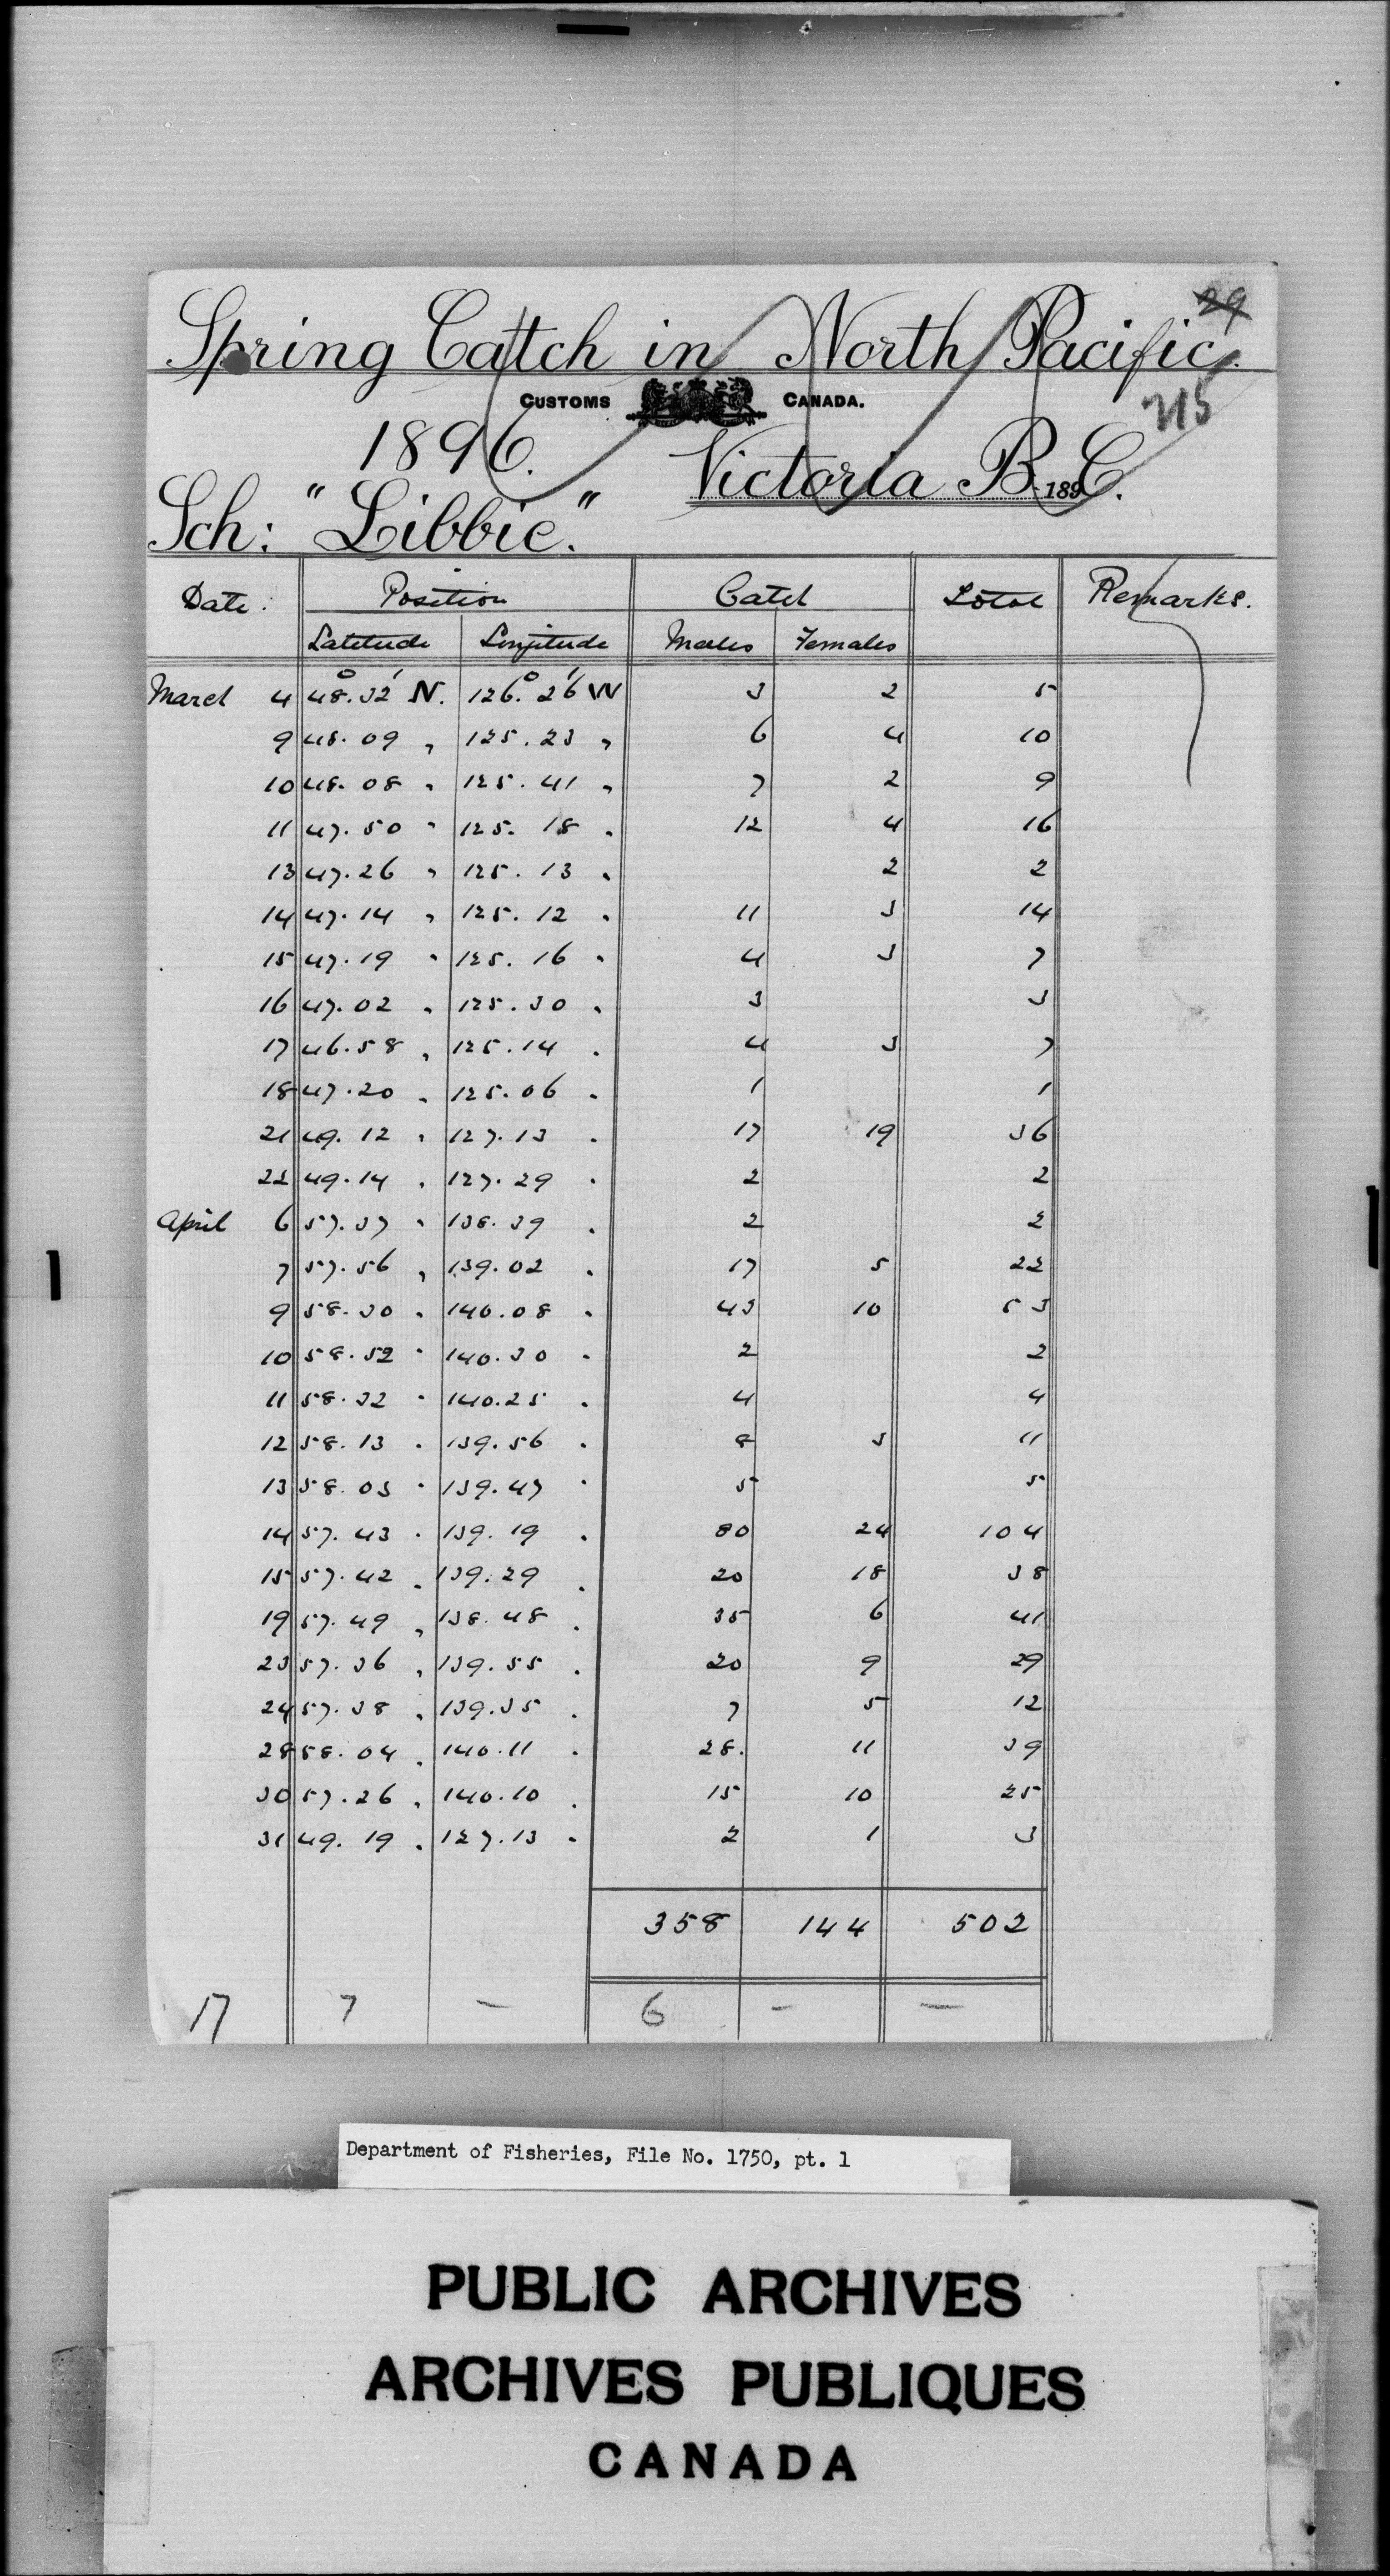 29
Spring Catch in North Pacific.
CUSTOMS CANADA.
215
1896.
Victoria B.C.
189
Sch: "Libbie."
Date. Position Catch Total Remarks.
Latitude Longitude Males Females
March 4 48°.32' N. 126°.26' W 3 2 5
9 48.09 „ 125.23 „ 6 4 10
10 48.08 „ 125.41 „ 7 2 9
11 47.50 „ 125.18 „ 12 4 16
13 47.26 „ 125.13 „ 2 2
14 47.14 „ 125.12 „ 11 3 14
15 47.19 „ 125.16 „ 4 3 7
16 47.02 „ 125.30 „ 3 3
17 46.58 „ 125.14 „ 4 3 7
18 47.20 „ 125.06 „ 1 1
21 49.12 „ 127.13 „ 17 19 36
22 49.14 „ 127.29 „ 2 2
April 6 57.37 „ 138.39 „ 2 2
7 57.56 „ 139.02 „ 17 5 22
9 58.30 „ 140.08 „ 43 10 53
10 58.52 „ 140.30 „ 2 2
11 58.32 „ 140.25 „ 4 4
12 58.13 „ 139.56 „ 8 3 11
13 58.03 „ 139.47 „ 5 5
14 57.43 „ 139.19 „ 80 24 104
15 57.42 „ 139.29 „ 20 18 38
19 57.49 „ 138.48 „ 35 6 41
23 57.36 „ 139.55 „ 20 9 29
24 57.38 „ 139.35 „ 7 5 12
28 58.04 „ 140.11 „ 28. 11 39
30 57.26 „ 140.10 „ 15 10 25
31 49.19 „ 127.13 „ 2 1 3
358 144 502
17 7 — 6 — —
Department of Fisheries, File No. 1750, pt. 1
PUBLIC ARCHIVES
ARCHIVES PUBLIQUES
CANADA